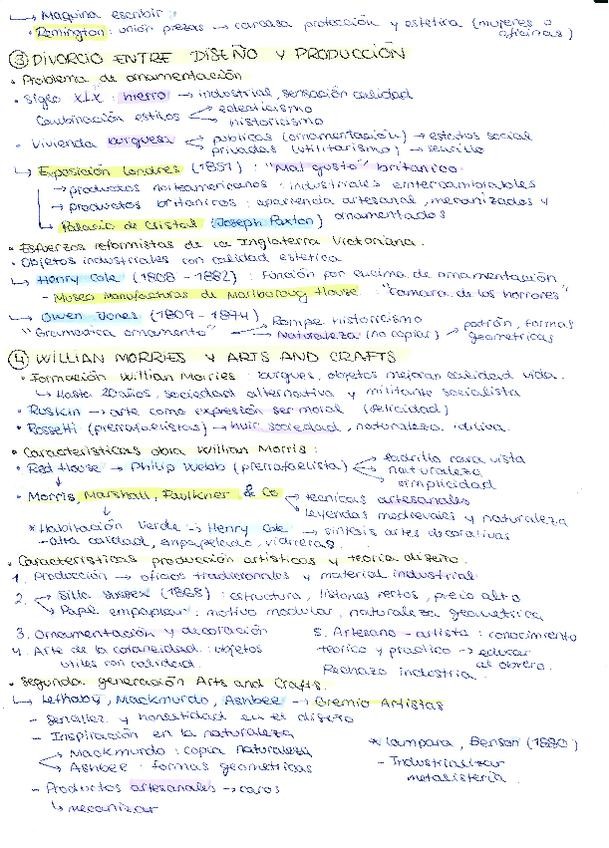 ↳ Maquina escribir :
• Remington : unión piezas → carcasa protección y estetica (mujeres a oficinas)
③ DIVORCIO ENTRE DISEÑO Y PRODUCCIÓN
• Problema de ornamentación
• Siglo XIX : hierro → industrial, sensación calidad
Combinación estilos < eclecticismo
historicismo
• Vivienda burguesa < publicas (ornamentación) → estatus social
privadas (utilitarismo) → sencillo
↳ Exposición Londres (1851) : "Mal gusto" britanico.
→ productos norteamericanos : industriales intercambiables
→ productos britanicos : apariencia artesanal, mecanizados y ornamentados
↳ Palacio de Cristal (Joseph Paxton)
• Esfuerzos reformistas de la Inglaterra Victoriana.
• Objetos industriales con calidad estetica
↳ Henry Cole (1808 - 1882) : Función por encima de ornamentación
- Museo Manufacturas de Marlboroug House : "Camara de los horrores"
↳ Owen Jones (1809 - 1874) → Rompe historicismo
"Gramatica ornamento" → Naturaleza (no copiar) → patrón, formas geometricas
④ WILLIAN MORRIES Y ARTS AND CRAFTS
• Formación Willian Morries : burgues, objetos mejoran calidad vida.
↳ Hasta 20 años, sociedad alternativa y militante socialista
• Ruskin → arte como expresión ser moral (felicidad)
• Rossetti (prerrafaelistas) → huir sociedad, naturaleza idilica.
• Caracteristicas obra Willian Morris :
• Red House → Philip Webb (prerrafaelista) < ladrillo cara vista
naturaleza
simplicidad
• Morris, Marshall, Faulkner & Co → tecnicas artesanales
→ leyendas medievales y naturaleza
* Habitación Verde → Henry Cole → sintesis artes decorativas
- alta calidad, empapelado, vidrieras.
• Caracteristicas producción artisticos y teoria diseño.
1. Producción → oficios tradicionales y material industrial
2. → Silla Sussex (1868) : estructura, listones rectos, precio alto
→ Papel empapelar : motivo modular, naturaleza geometrica
3. Ornamentación y decoración
4. Arte de la cotaneidad : objetos utiles con calidad.
5. Artesano - artista : conocimiento teorico y practico → educar al obrero.
Rechazo industria.
• Segunda generación Arts and Crafts.
↳ Lethaby, Mackmurdo, Ashbee → Gremio Artistas
- Senallez y honestidad en el diseño
- Inspiración en la naturaleza
→ Mackmurdo : copia naturaleza
→ Ashbee : formas geometricas
* lampara, Benson (1880)
- Industrializar metalisteria.
- Productos artesanales → caros
↳ mecanizar